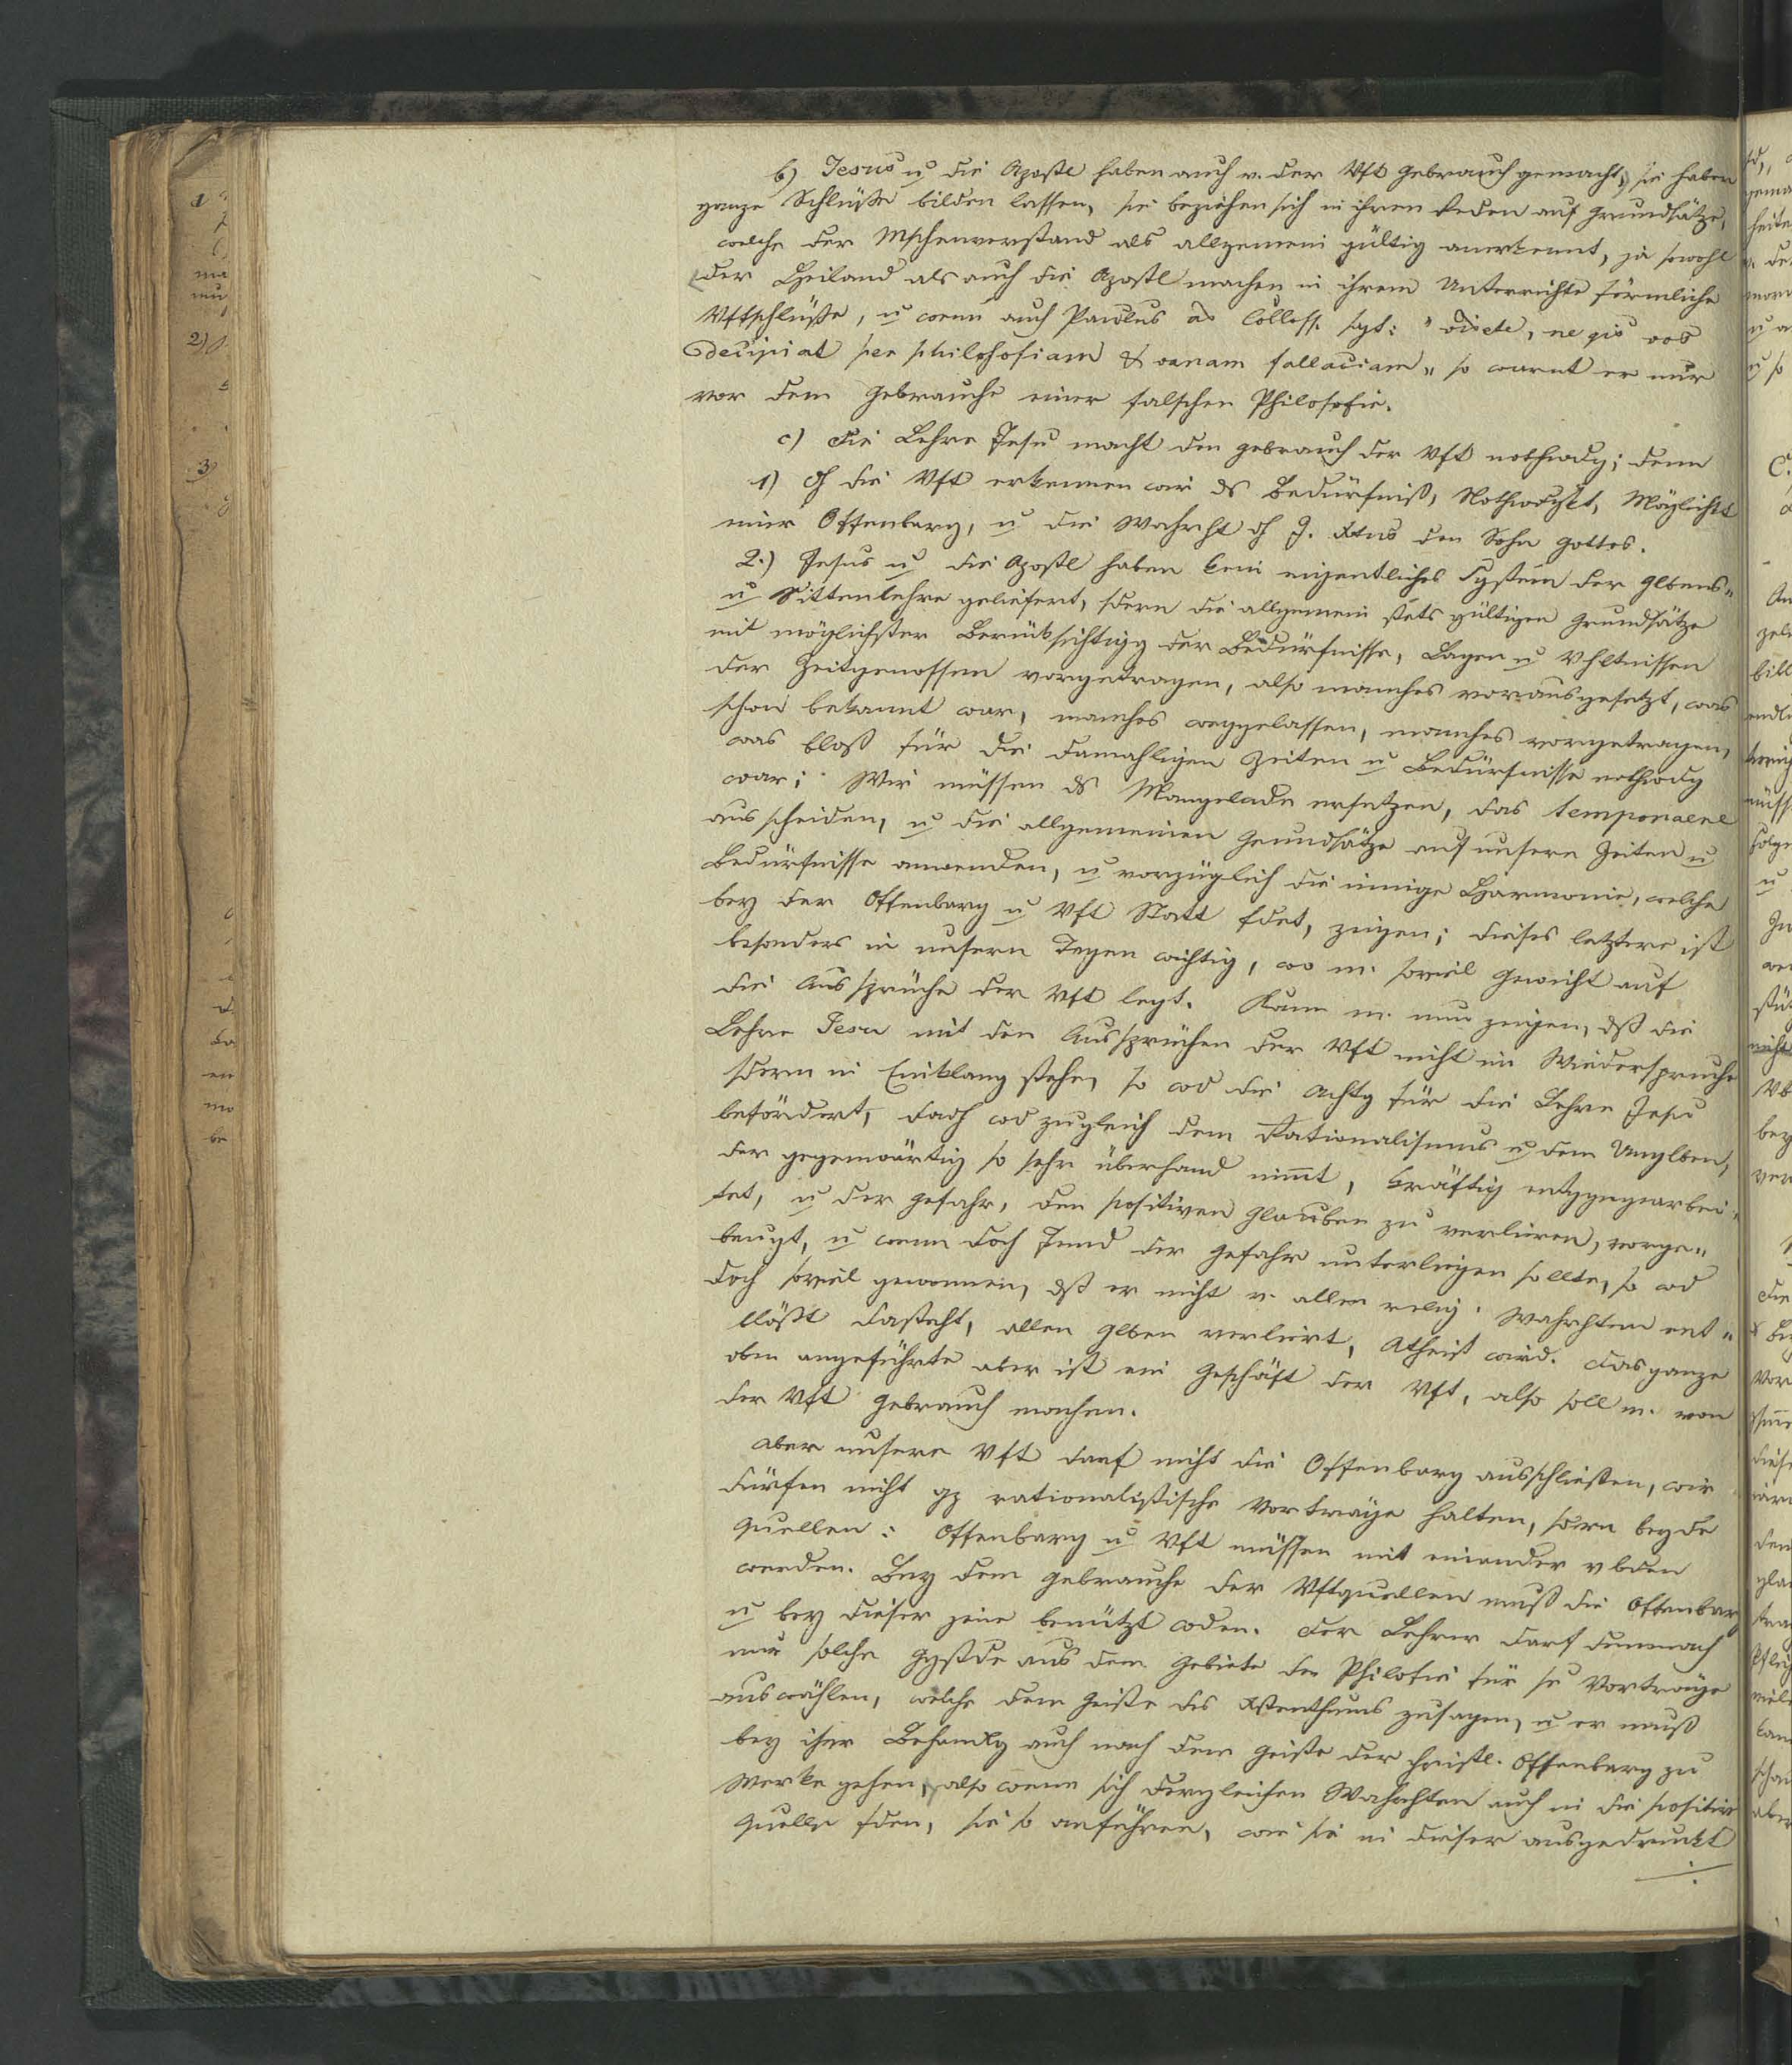 b) Jesus u die Apostl haben auch v. der Vft Gebrauch gemacht, sie haben
ganze Schlüße bilden lassen, sie beziehen sich in ihren Reden auf Grundsätze,
welche der Mschenverstand als allgemein gültig anerkennt, ja sowohl
der Heiland als auch die Apostl machen in ihrem Unterrichte förmliche
Vftschlüße, u wenn auch Paulus ad Colloss. sgt: "videte, ne qis vos
decipiat per philosofiam & vanam fallaciam" so warnt er nur
vor dem Gebrauche einer falschen Philosofie.
c) Die Lehre Jesu macht den Gebrauch der Vft nothwdg; denn
1) dh die Vft erkennen wir ds Bedürfniß, Nothwdgkt, Möglichkt
einer Offenbarg, u die Wahrht dh J. Xtus den Sohn Gottes.
2.) Jesus u die Apostl haben kein eigentliches System der Glbens-
u Sittenlehre geliefert, sdern die allgemein stets gültigen Grundsätze
mit möglichster Berüksichtigg der Bedürfnisse, Lagen u Vhltnissen
der Zeitgenossen vorgetragen, also manches vorausgesetzt, was
schon bekannt war, manches weggelassen, manches vorgetragen,
was bloß für die damahligen Zeiten u Bedürfnisse nothwdg
war; Wir müssen ds Mangelnde ersetzen, das temporaere
ausscheiden, u die allgemeinen Grundsätze auf unsere Zeiten u
Bedürfnisse anwenden, u vorzüglich die innige Harmonie, welche
bey der Offenbarg u Vft Statt fdet, zeigen; dieses letztere ist
besonders in unsern Tagen wichtig, wo m. soviel Gewicht auf
die Aussprüche der Vft legt. Kann m. nun zeigen, dß die
Lehre Jesu mit den Aussprüchen der Vft nicht im Wiederspruche
sdern in Einklang stehe, so wd die Achtg für die Lehre Jesu
befördert, dadh wd zugleich dem Rationalismus u dem Unglben,
der gegenwärtig so sehr überhand nimt, kräftig entgegngearbei-
tet, u der Gefahr, den positiven Glauben zu verlieren, vorge-
beugt, u wenn doch Jmd der Gefahr unterliegen sollte, so wd
doch soviel gewonnen, dß er nicht v. allen relig. Wahrhten ent-
blößt dasteht, allen Glben verliert, Atheist wird. Das ganze
oben angeführte aber ist ein Geschäft der Vft, also soll m. von
der Vft Gebrauch machen.
Aber unsere Vft darf nicht die Offenbarg ausschließen, wir
dürfen nicht gz rationalistische Vorträge halten, sdern beyde
Quellen: Offenbarg u Vft müssen mit einander vbden
werden. Bey dem Gebrauche der Vftquellen muß die Offenbarg
u bey dieser jene benützt wden. Der Lehrer darf demnach
nur solche Ggstde aus dem Gebiete der Philosofie für se Vorträge
auswählen, welche dem Geiste des Xstenthums zusagen, u er muß
bey ihrer Behandlg auch nach dem Geiste der christl. Offenbarg zu
Werke gehen, also wenn sich dergleichen Wahrhten auch in die positive
Quelle fden, sie so anführen, wie sie in dieser ausgedruckt